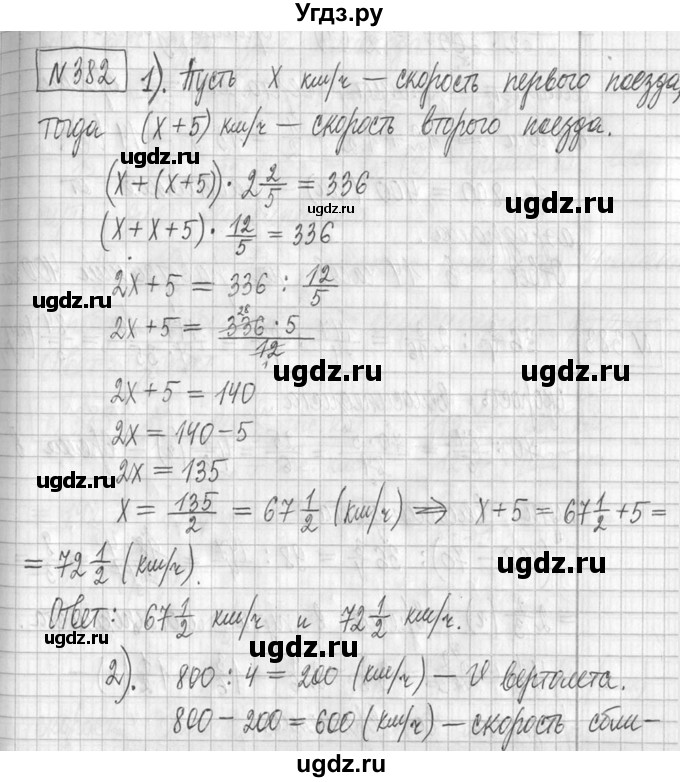 Угдз.ру
№382 1). Пусть x км/ч — скорость первого поезда,
тогда (x+5) км/ч — скорость второго поезда.
ugdz.ru
(x+(x+5))·2 2/5 = 336
ugdz.ru
ugdz.ru
(x+x+5)·12/5 = 336
ugdz.ru
2x+5 = 336 : 12/5
ugdz.ru
28
2x+5 = 336·5/12
1
ugdz.ru
ugdz.ru
2x+5 = 140
2x = 140-5
2x = 135
ugdz.ru
x = 135/2 = 67 1/2 (км/ч) ⇒ x+5 = 67 1/2 +5 =
= 72 1/2 (км/ч).
ugdz.ru
Ответ: 67 1/2 км/ч и 72 1/2 км/ч.
ugdz.ru
ugdz.ru
2). 800 : 4 = 200 (км/ч) — V вертолета.
800 - 200 = 600 (км/ч) — скорость сбли-
ugdz.ru
ugdz.ru